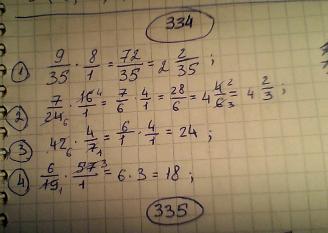 334
1) 9/35 · 8/1 = 72/35 = 2 2/35 ;
2) 7/24 6 · 16 4/1 = 7/6 · 4/1 = 28/6 = 4 4 2/6 3 = 4 2/3 ;
3) 42 6 · 4/7 1 = 6/1 · 4/1 = 24 ;
4) 6/19 1 · 57 3/1 = 6 · 3 = 18 ;
335